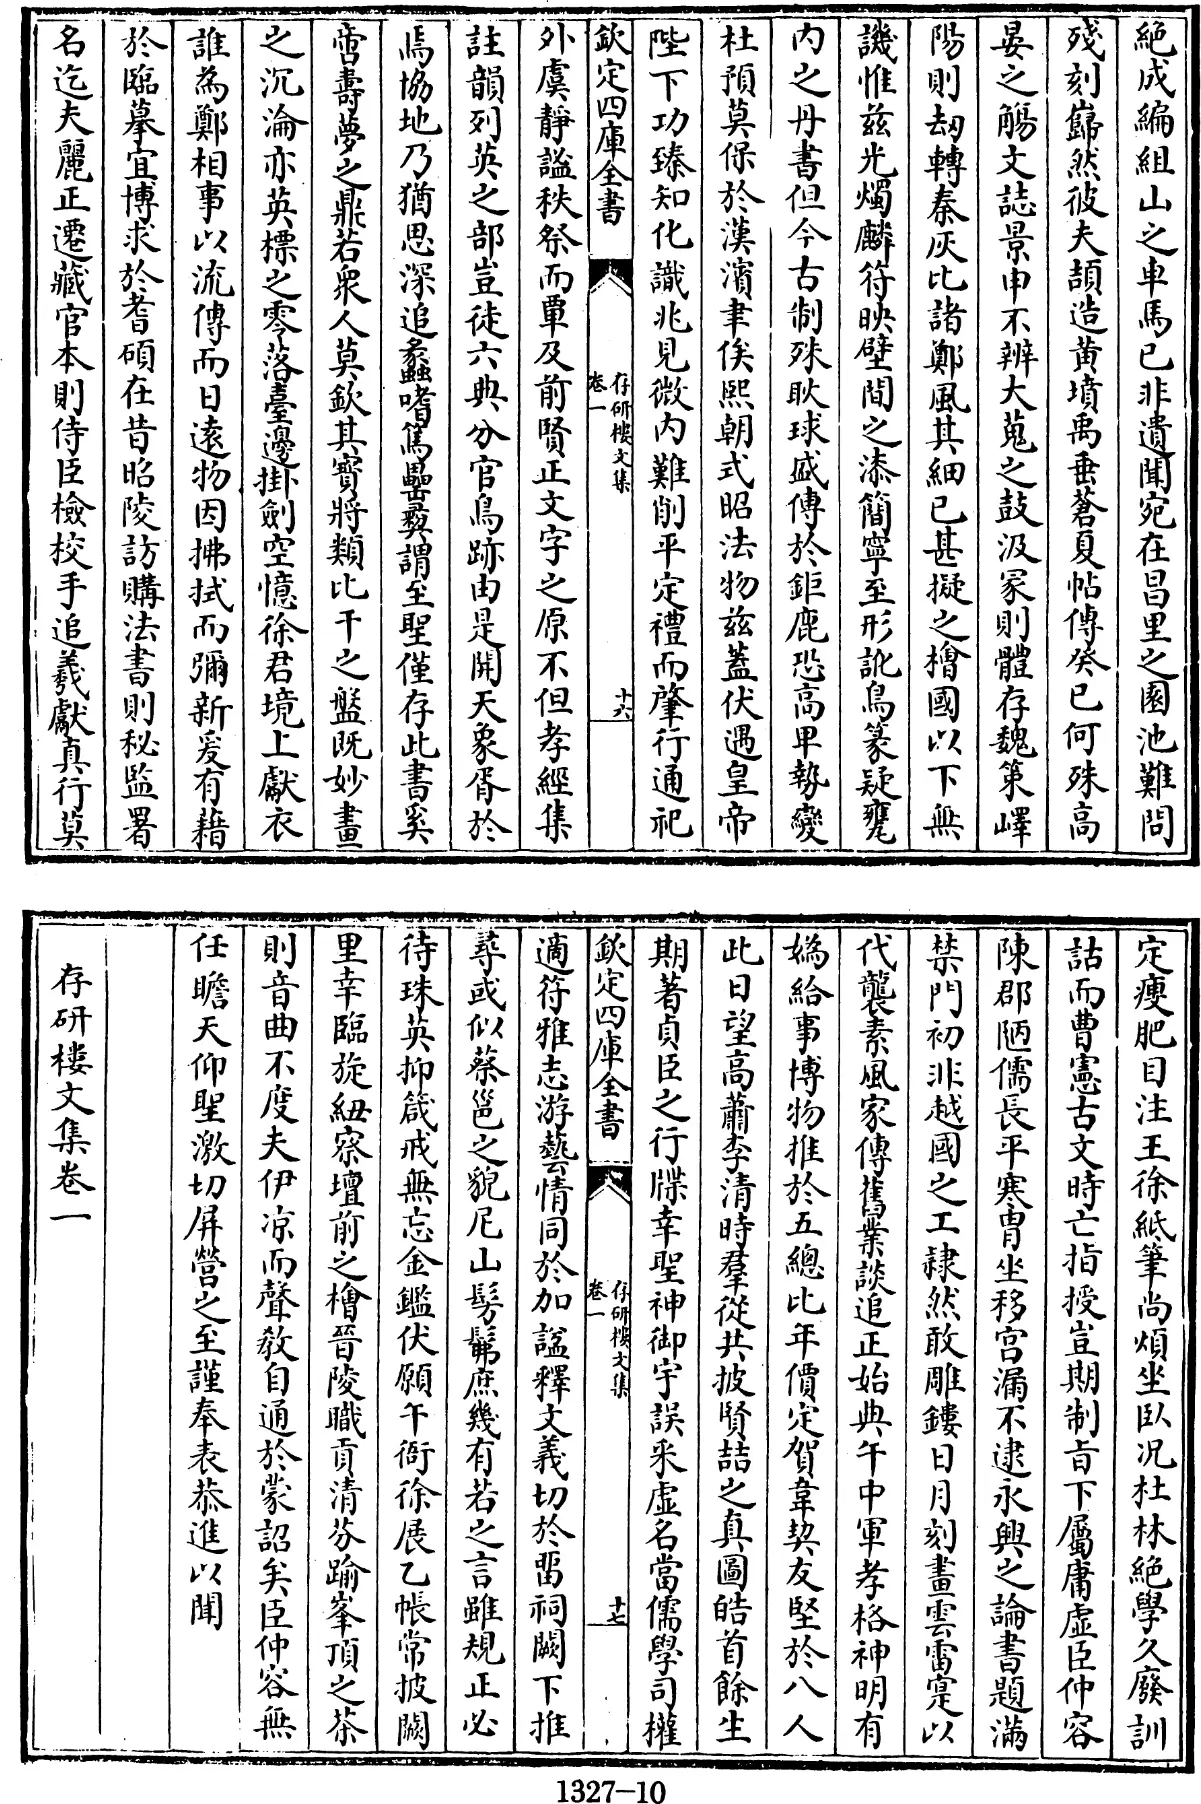 絶成編組山之車馬已非遺聞宛在昌里之園池難問
殘刻巋然彼夫頡造黃墳禹垂蒼夏帖傳癸巳何殊高
晏之觴文誌景申不辨大蒐之鼓汲冢則體存魏第嶧
陽則刼轉秦灰比諸鄭風其細已甚擬之檜國以下無
譏惟兹光燭麟符映壁間之漆簡寧至形訛鳥篆疑甕
内之丹書但今古制殊耿球盛傳於鉅鹿恐高卑勢變
杜預莫保於漢濱聿俟熙朝式昭法物兹蓋伏遇皇帝
陛下功臻知化識兆見微内難削平定禮而肇行通祀
欽定四庫全書
存研樓文集
卷一
十六
外虞靜謐秩祭而覃及前賢正文字之原不但孝經集
註韻列英之部豈徒六典分官鳥跡由是開天象胥於
焉協地乃猶思深追蠡嗜篤罍彛謂至聖僅存此書奚
啻壽夢之鼎若衆人莫欽其寳將類比干之盤既妙畫
之沉淪亦英標之零落臺邊掛劍空憶徐君境上獻衣
誰為鄭相事以流傳而日遠物因拂拭而彌新爰有藉
於臨摹宜博求於耆碩在昔昭陵訪購法書則秘監署
名迄夫麗正遷藏官本則侍臣檢校手追羲獻真行莫
定瘦肥目注王徐紙筆尚煩坐臥况杜林絶學久廢訓
詁而曹憲古文時亡指授豈期制旨下屬庸虛臣仲容
陳郡陋儒長平寒胄坐移宫漏不逮永興之論書題滿
禁門初非越國之工隷然敢雕鏤日月刻畫雲雷寔以
代襲素風家傳舊業談追正始典午中軍孝格神明有
媯給事博物推於五總比年價定賀韋契友堅於八人
此日望高蕭李清時羣從共披賢喆之真圖皓首餘生
期著貞臣之行牒幸聖神御宇誤采虛名當儒學司權
欽定四庫全書
存研樓文集
卷一
十七
適符雅志游藝情同於加諡釋文義切於畱祠闕下推
尋或似蔡邕之貌尼山髣髴庶幾有若之言雖規正必
待珠英抑箴戒無忘金鑑伏願午衙徐展乙帳常披闕
里幸臨旋紐察壇前之檜晉陵職貢清芬踰峯頂之茶
則音曲不度夫伊涼而聲敎自通於蒙詔矣臣仲容無
任瞻天仰聖激切屏營之至謹奉表恭進以聞
存研樓文集卷一
1327—10